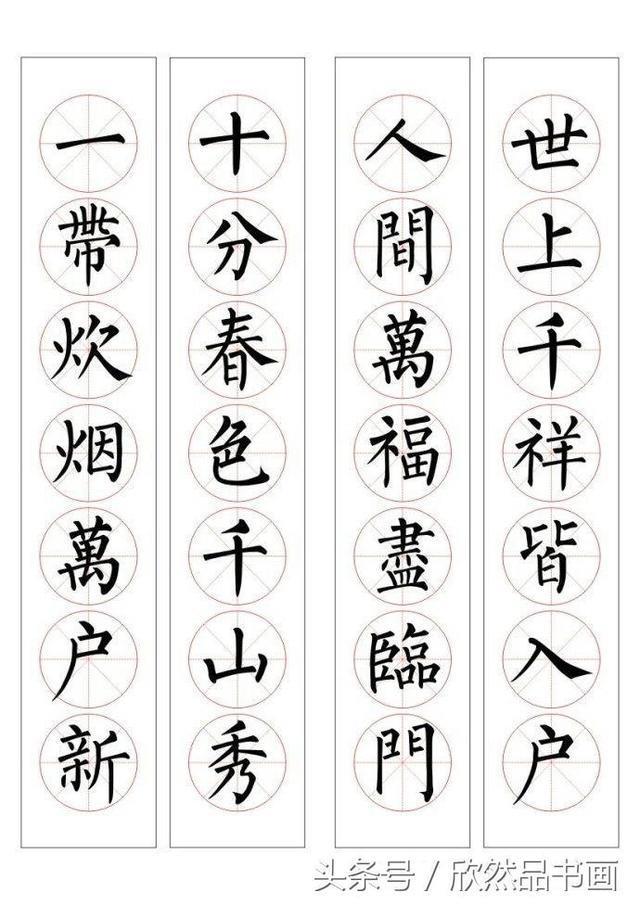 世上千祥皆入户
人間萬福盡臨門
十分春色千山秀
一帶炊烟萬户新
头条号 / 欣然品书画